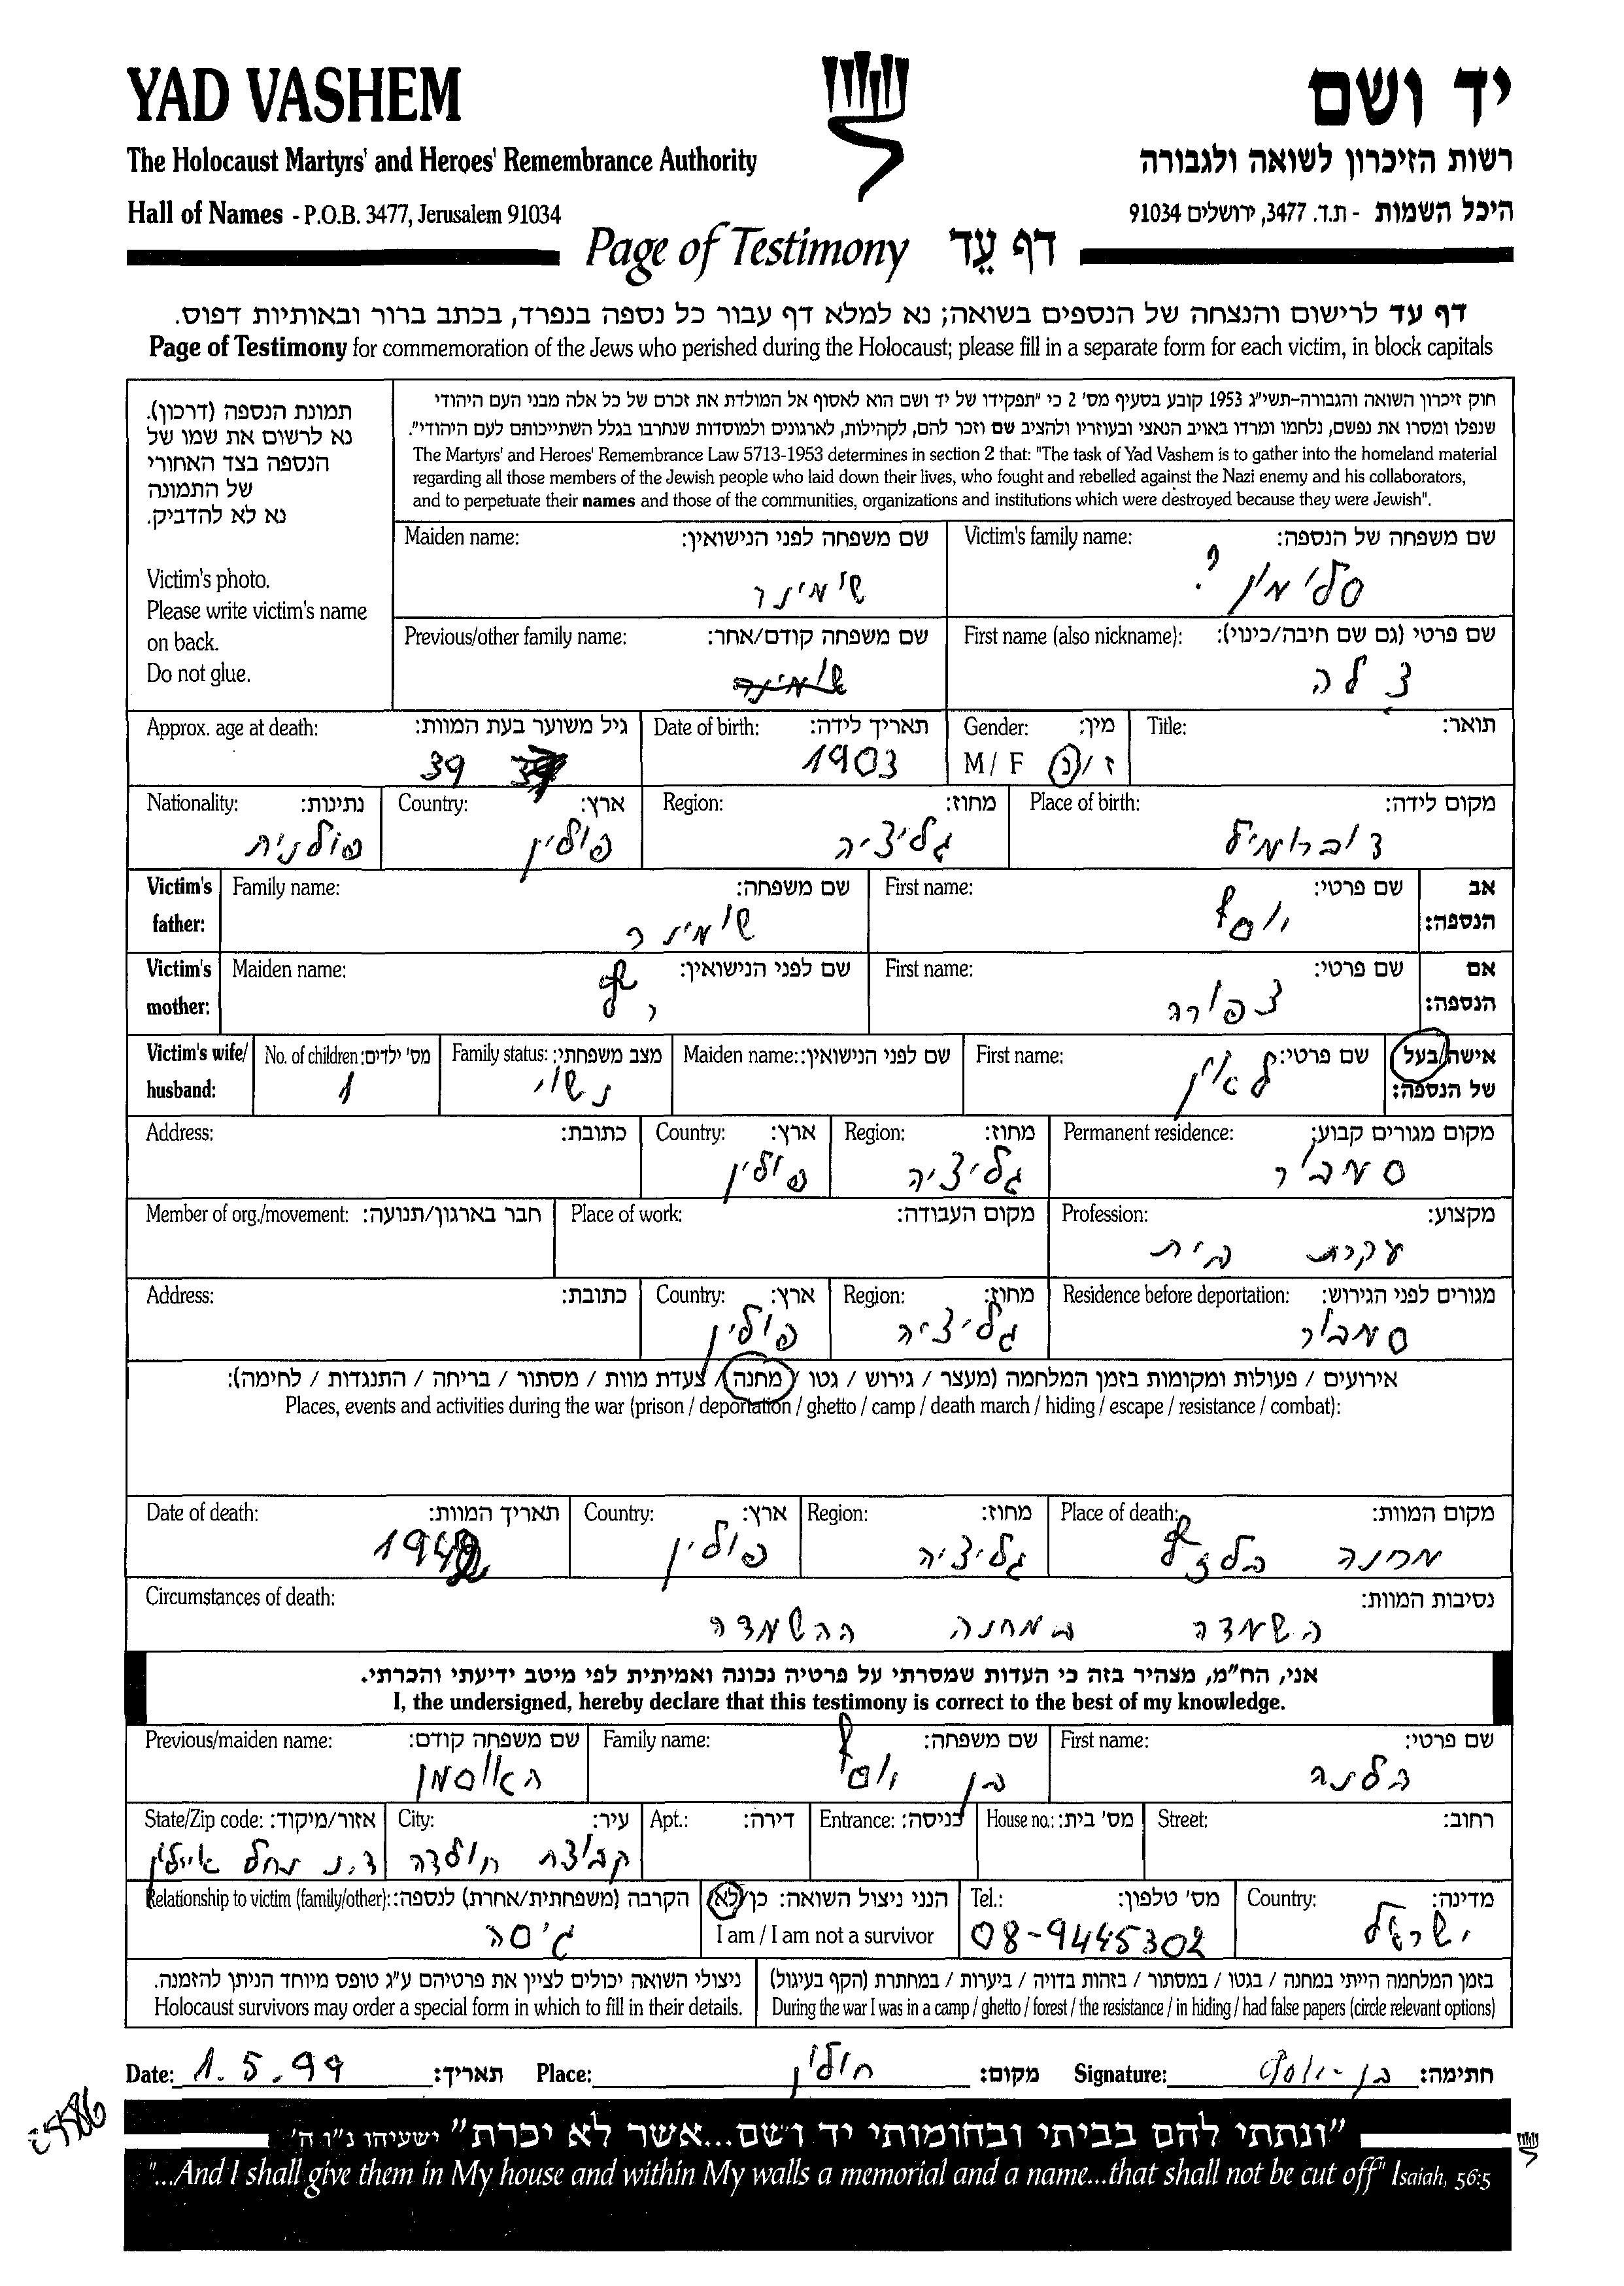 YAD VASHEM
יד ושם
The Holocaust Martyrs' and Heroes' Remembrance Authority
רשות הזיכרון לשואה ולגבורה
Hall of Names - P.O.B. 3477, Jerusalem 91034
היכל השמות - ת.ד. 3477, ירושלים 91034
Page of Testimony דף עֵד
דף עד לרישום והנצחה של הנספים בשואה; נא למלא דף עבור כל נספה בנפרד, בכתב ברור ובאותיות דפוס.
Page of Testimony for commemoration of the Jews who perished during the Holocaust; please fill in a separate form for each victim, in block capitals
תמונת הנספה (דרכון).
נא לרשום את שמו של
הנספה בצד האחורי
של התמונה
נא לא להדביק.
Victim's photo.
Please write victim's name
on back.
Do not glue.
חוק זיכרון השואה והגבורה-תשי"ג 1953 קובע בסעיף מס' 2 כי "תפקידו של יד ושם הוא לאסוף אל המולדת את זכרם של כל אלה מבני העם היהודי
שנפלו ומסרו את נפשם, נלחמו ומרדו באויב הנאצי ובעוזריו ולהציב שם וזכר להם, לקהילות, לארגונים ולמוסדות שנחרבו בגלל השתייכותם לעם היהודי".
The Martyrs' and Heroes' Remembrance Law 5713-1953 determines in section 2 that: "The task of Yad Vashem is to gather into the homeland material
regarding all those members of the Jewish people who laid down their lives, who fought and rebelled against the Nazi enemy and his collaborators,
and to perpetuate their names and those of the communities, organizations and institutions which were destroyed because they were Jewish".
Victim's family name: שם משפחה של הנספה:
סלימין ?
Maiden name: שם משפחה לפני הנישואין:
שומינר
First name (also nickname): שם פרטי (גם שם חיבה/כינוי):
צלה
Previous/other family name: שם משפחה קודם/אחר:
Title: תואר:
Gender: מין:
M / F ז / נ
Date of birth: תאריך לידה:
1903
Approx. age at death: גיל משוער בעת המוות:
39
Place of birth: מקום לידה:
דוברומיל
Region: מחוז:
גליציה
Country: ארץ:
פולין
Nationality: נתינות:
פולנית
Victim's father: אב הנספה:
First name: שם פרטי:
יוסף
Family name: שם משפחה:
שומינר
Victim's mother: אם הנספה:
First name: שם פרטי:
צפורה
Maiden name: שם לפני הנישואין:
Victim's wife/ husband: אישה/בעל של הנספה:
First name: שם פרטי:
לאון
Maiden name: שם לפני הנישואין:
Family status: מצב משפחתי:
נשוי
No. of children: מס' ילדים:
1
Permanent residence: מקום מגורים קבוע:
סמבור
Region: מחוז:
גליציה
Country: ארץ:
פולין
Address: כתובת:
Profession: מקצוע:
עקרת בית
Place of work: מקום העבודה:
Member of org./movement: חבר בארגון/תנועה:
Residence before deportation: מגורים לפני הגירוש:
סמבור
Region: מחוז:
גליציה
Country: ארץ:
פולין
Address: כתובת:
אירועים / פעולות ומקומות בזמן המלחמה (מעצר / גירוש / גטו / מחנה / צעדת מוות / מסתור / בריחה / התנגדות / לחימה):
Places, events and activities during the war (prison / deportation / ghetto / camp / death march / hiding / escape / resistance / combat):
Place of death: מקום המוות:
מחנה בלזץ
Region: מחוז:
גליציה
Country: ארץ:
פולין
Date of death: תאריך המוות:
1942
Circumstances of death: נסיבות המוות:
השמדה במחנה ההשמדה
אני, הח"מ, מצהיר בזה כי העדות שמסרתי על פרטיה נכונה ואמיתית לפי מיטב ידיעתי והכרתי.
I, the undersigned, hereby declare that this testimony is correct to the best of my knowledge.
First name: שם פרטי:
הלנה
Family name: שם משפחה:
בן יוסף
Previous/maiden name: שם משפחה קודם:
האוסמן
Street: רחוב:
House no.: מס' בית:
Entrance: כניסה:
Apt.: דירה:
City: עיר:
קבוצת חולדה
State/Zip code: אזור/מיקוד:
ד.נ נחל איילון
Country: מדינה:
ישראל
Tel.: מס' טלפון:
08-9445302
הנני ניצול השואה: כן/לא
I am / I am not a survivor
Relationship to victim (family/other): הקרבה (משפחתית/אחרת) לנספה:
גיסה
בזמן המלחמה הייתי במחנה / בגטו / במסתור / בזהות בדויה / ביערות / במחתרת (הקף בעיגול)
During the war I was in a camp / ghetto / forest / the resistance / in hiding / had false papers (circle relevant options)
ניצולי השואה יכולים לציין את פרטיהם ע"ג טופס מיוחד הניתן להזמנה.
Holocaust survivors may order a special form in which to fill in their details.
Date: 1.5.99 תאריך: Place: חולון מקום: Signature: בן-יוסף חתימה:
"ונתתי להם בביתי ובחומותי יד ושם...אשר לא יכרת" ישעיהו נ"ו ה'
"...And I shall give them in My house and within My walls a memorial and a name...that shall not be cut off" Isaiah, 56:5